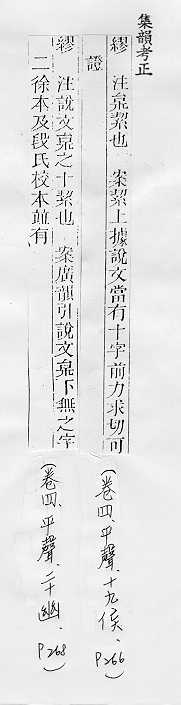 集韻考正
繆 注枲絜也 案絜上據說文當有十字前力求切可
證
(卷四、平聲、十九侯、P266)
繆 注說文枲之十絜也 案廣韻引說文枲下無之字
二徐本及段氏校本並有
(卷四、平聲、二十幽、P268)